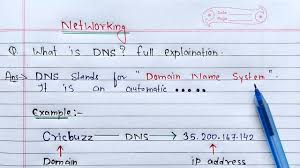 Networking
Q. What is DNS? full explaination.
Ans → DNS Stands for "Domain Name System".
It is an automatic .....
Example:-
Cricbuzz —— DNS ——→ 35.200.167.142
Domain ip address